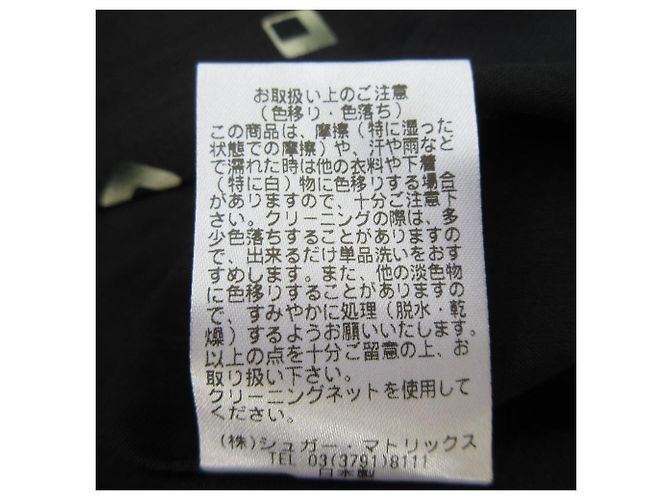 お取扱い上のご注意
(色移り・色落ち)
この商品は、摩擦(特に湿った
状態での摩擦)や、汗や雨など
で濡れた時は他の衣料や下着
(特に白)物に色移りする場合
がありますので、十分ご注意下
さい。クリーニングの際は、多
少色落ちすることがありますの
で、出来るだけ単品洗いをおす
すめします。また、他の淡色物
に色移りすることがありますの
で、すみやかに処理(脱水・乾
燥)するようお願いいたします。
以上の点を十分ご留意の上、お
取り扱い下さい。
クリーニングネットを使用して
ください。
(株)シュガー・マトリックス
TEL 03(3791)8111
日本製